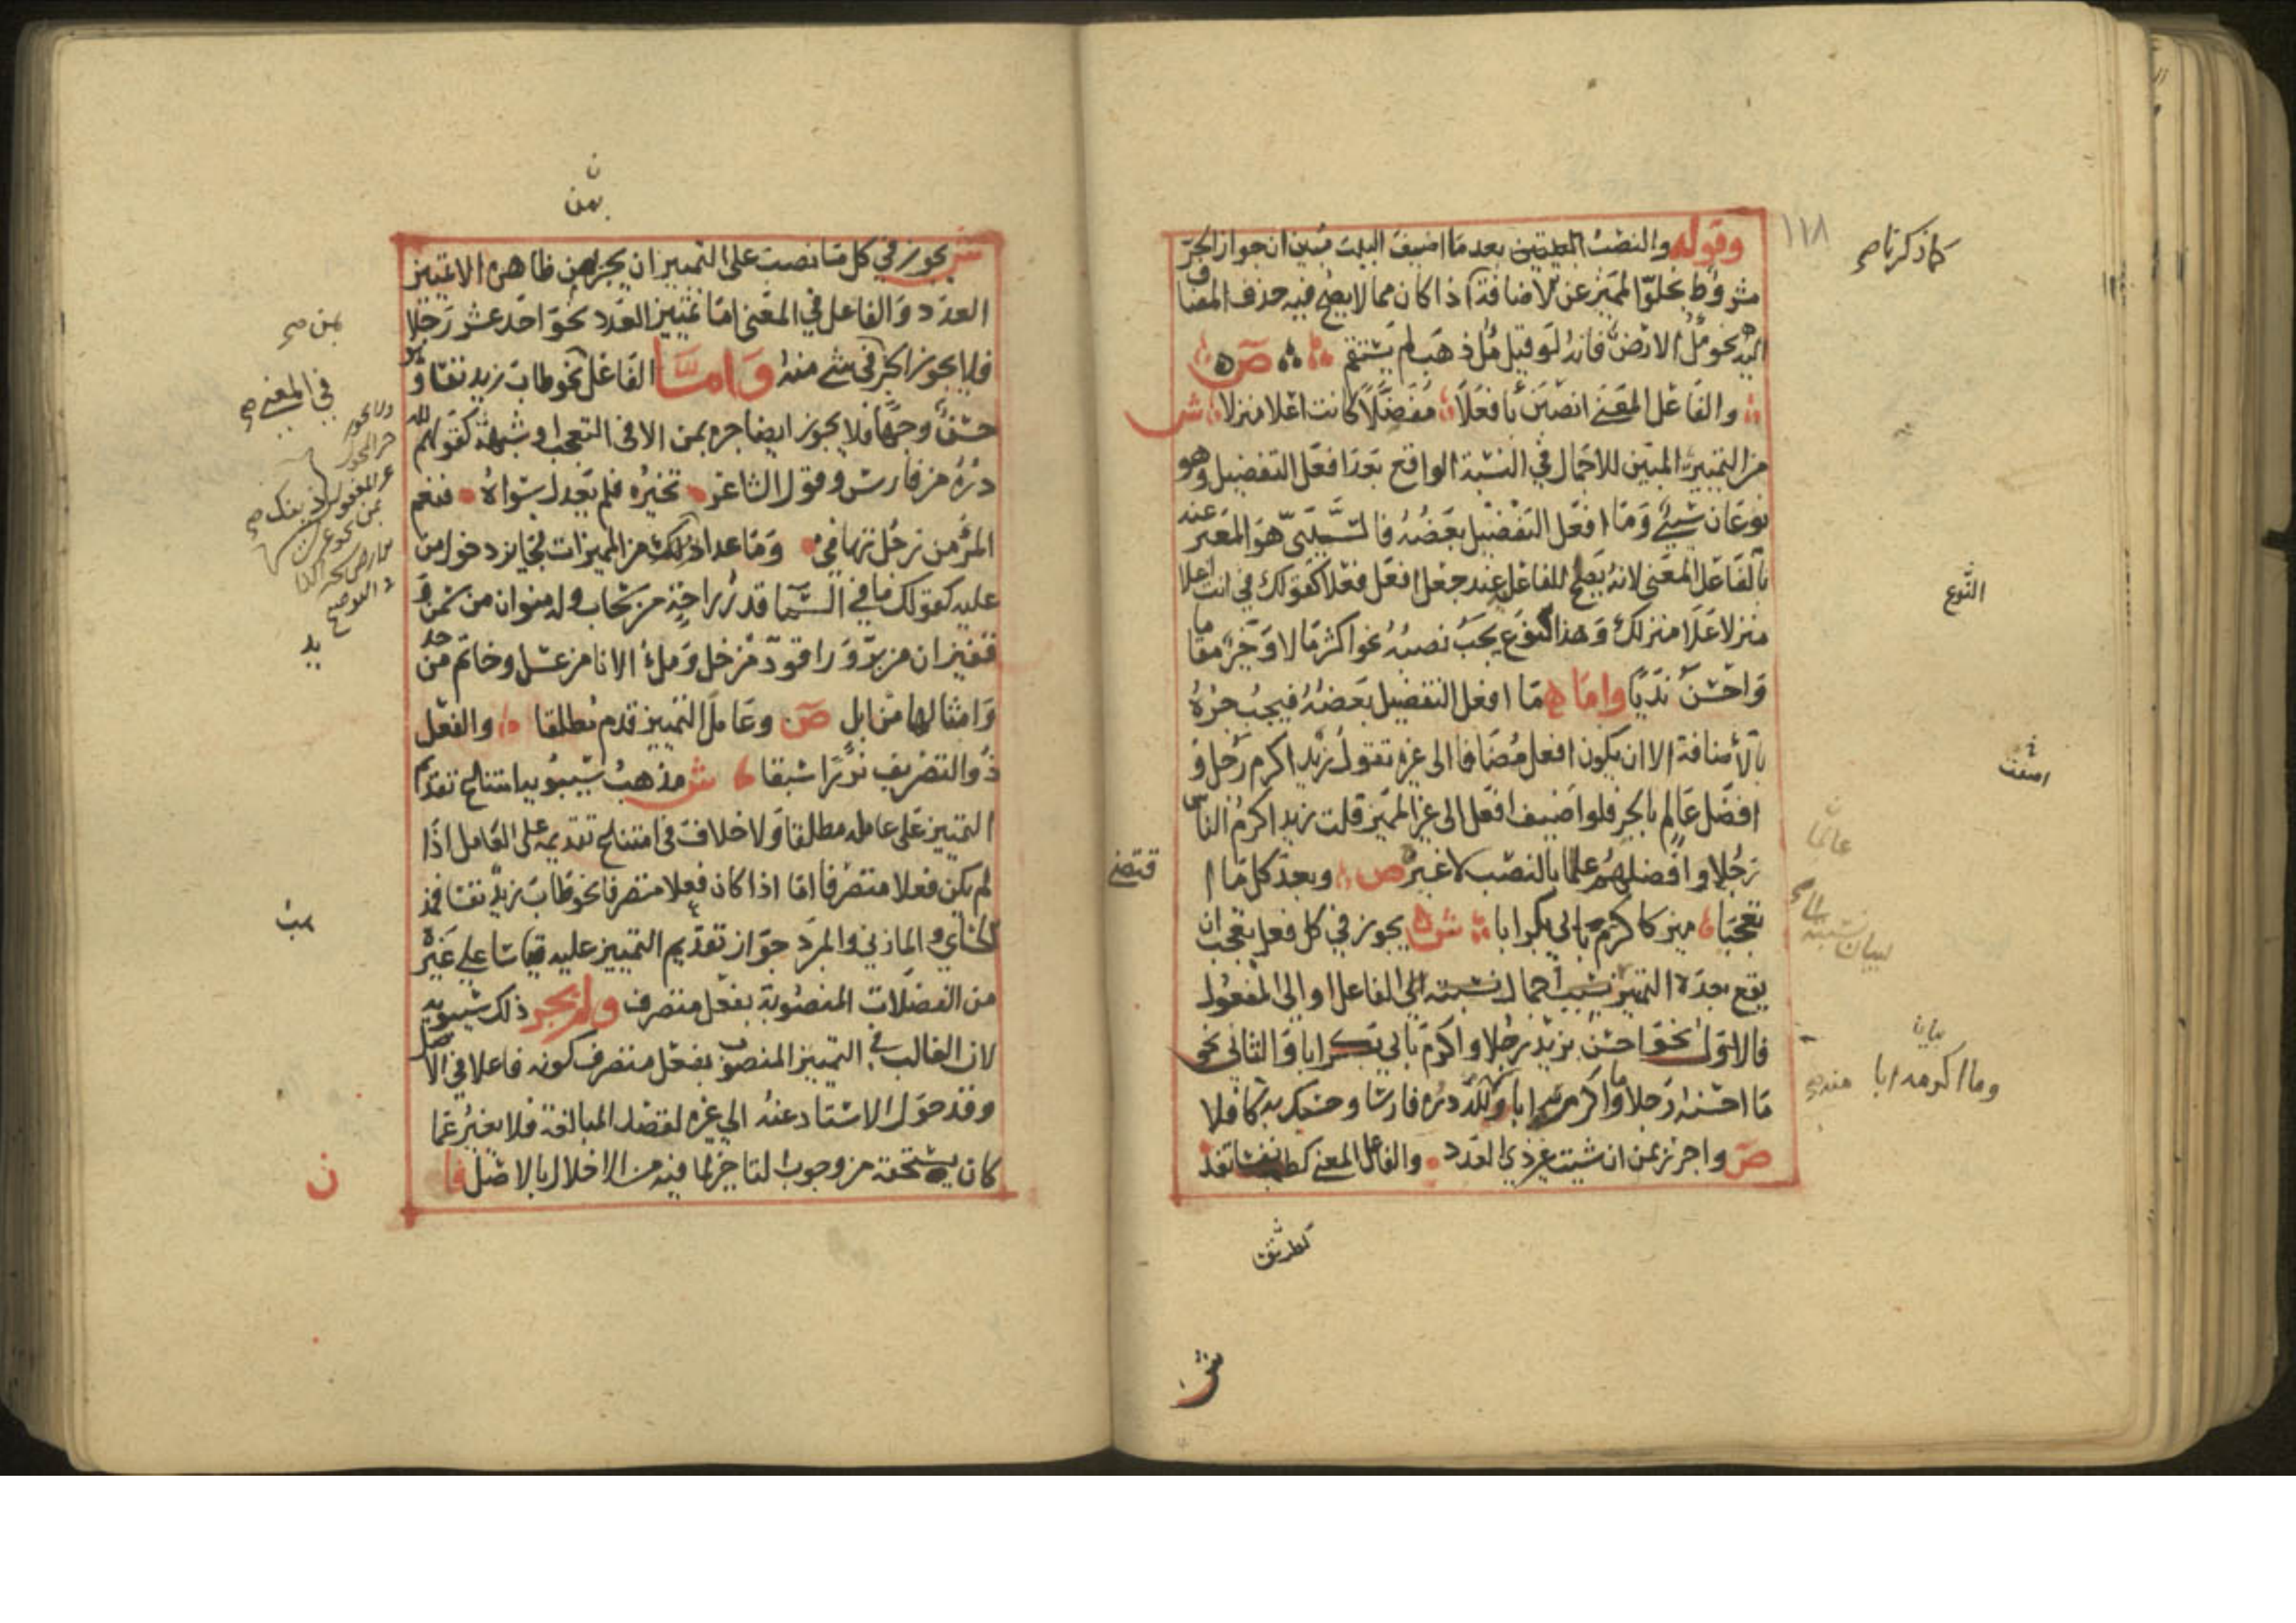 ١١٨
كما ذكرنا صح
وقوله والنصب بعد ما اضيف البيت مبين ان جواز الجر
مشروط بخلو المميز عن الاضافة اذا كان مما لا يصح فيه حذف المضاف
اليه نحو ملء الارض فانه لو قيل ملء ذهب لم يستقم ص
والفاعل المعنى انصبن بافعلا مفضلا كانت اعلا منزلا ش
من التمييز المبين للاجمال في النسبة الواقع بعد افعل التفضيل وهو
نوعان سببي وما افعل التفضيل بعضه فالسببي هو المعبر عنه
بالفاعل المعنى لانه يصلح للفاعل عند جعل افعل فعلا كقولك في انت اعلا
منزلا علا منزلك وهذا النوع يجب نصبه نحو اكثر مالا وخير مقاما
النوع
واحسن نديا واما ما افعل التفضيل بعضه فيجب جره
بالاضافة الا ان يكون افعل مضافا الى غيره تقول زيد اكرم رجل و
افضل عالم بالجر فلو اضيف افعل الى غير المميز قلت زيد اكرم الناس
رجلا وافضلهم علما بالنصب لا غير ص وبعد كل ما ا
عالما
قتضى
تعجبا ميز كاكرم بابي بكر ابا ش يجوز في كل فعل تعجب ان
يقع بعده التمييز اجمال نسبته الى الفاعل او الى المفعول
لبيان
فالاول نحو احسن بزيد رجلا واكرم بابي بكر ابا والثاني نحو
بيان
ما احسنه رجلا وما اكرمه ابا ولله دره فارسا وحسبك به كافلا
وما اكرمه ابا
ص واجرر بمن ان شيت غير ذي العدد والفاعل المعنى كطب نفسا تفد
ش
بمن
ش يجوز في كل ما نصب على التمييز ان يجر بمن ظاهرة الا تمييز
العدد والفاعل في المعنى اما تمييز العدد نحو احد عشر رجلا
بمن صح
فلا يجوز الجر في شي منه واما الفاعل نحو طاب زيد نفسا و
في المعنى صح
حسن وجها فلا يجوز ايضا جره بمن الا في التعجب او شبهه كقولهم لله
دره من فارس وقول الشاعر تخيره فلم يعدل سواه فنعم
المرء من رجل تهامي وما عدا ذلك من المميزات فجايز دخول من
عليه كقولك ما في السما قدر راحة من سحاب وله منوان من سمن و
قفيزان من بر وراقود من خل وملء الانا من عسل وخاتم من حديد
وامثالها من ابل ص وعامل التمييز قدم مطلقا والفعل
ذو التصريف نزرا سبقا ش مذهب سيبويه امتناع تقدم
التمييز على عامله مطلقا ولا خلاف في امتناع تقديمه على العامل اذا
لم يكن فعلا متصرفا اما اذا كان فعلا متصرفا نحو طاب زيد نفسا فمذ
الكسائي والمازني والمبرد جواز تقديم التمييز عليه قياسا على غيره
من الفضلات المنصوبة بفعل متصرف ولم يجز ذلك سيبويه
لان الغالب في التمييز المنصوب بفعل متصرف كونه فاعلا في الاصل
وقد حول الاسناد عنه الى غيره لقصد المبالغة فلا يغير عما
كان يستحقه من وجوب التاخير لما فيه من الاخلال بالاصل فا
ن